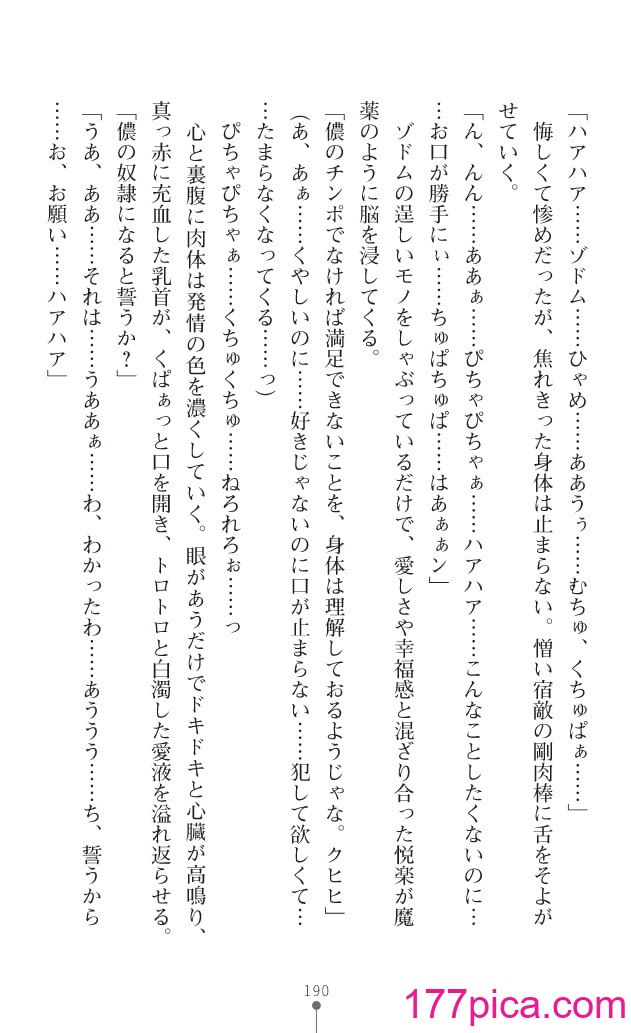 「ハアハア……ゾドム……ひゃめ……ああうぅ……むちゅ、くちゅぱぁ……」
悔しくて惨めだったが、焦れきった身体は止まらない。憎い宿敵の剛肉棒に舌をそよが
せていく。
「ん、んん……あぁぁ……ぴちゃぴちゃぁ……ハアハア……こんなことしたくないのに…
…お口が勝手にぃ……ちゅぱちゅぱ……はあぁぁン」
ゾドムの逞しいモノをしゃぶっているだけで、愛しさや幸福感と混ざり合った悦楽が魔
薬のように脳を浸してくる。
「儂のチンポでなければ満足できないことを、身体は理解しておるようじゃな。クヒヒ」
(あ、あぁ……くやしいのに……好きじゃないのに口が止まらない……犯して欲しくて…
…たまらなくなってくる……っ)
ぴちゃぴちゃぁ……くちゅくちゅ……ねろれろぉ……っ
心と裏腹に肉体は発情の色を濃くしていく。眼があうだけでドキドキと心臓が高鳴り、
真っ赤に充血した乳首が、くぱぁっと口を開き、トロトロと白濁した愛液を溢れ返らせる。
「儂の奴隷になると誓うか?」
「うあ、ああ……それは……うああぁ……わ、わかったわ……あううう……ち、誓うから
……お、お願い……ハアハア」
190
177pica.com